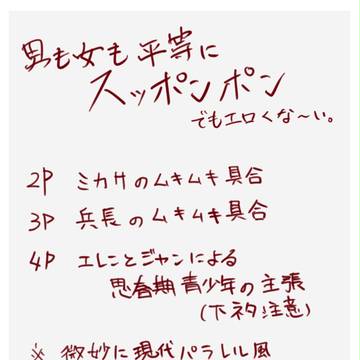 男も女も平等に
スッポンポン
でもエロくな〜い。
2P ミカサのムキムキ具合
3P 兵長のムキムキ具合
4P エレンとジャンによる
思春期青少年の主張
(下ネタ注意)
※ 微妙に現代パラレル風